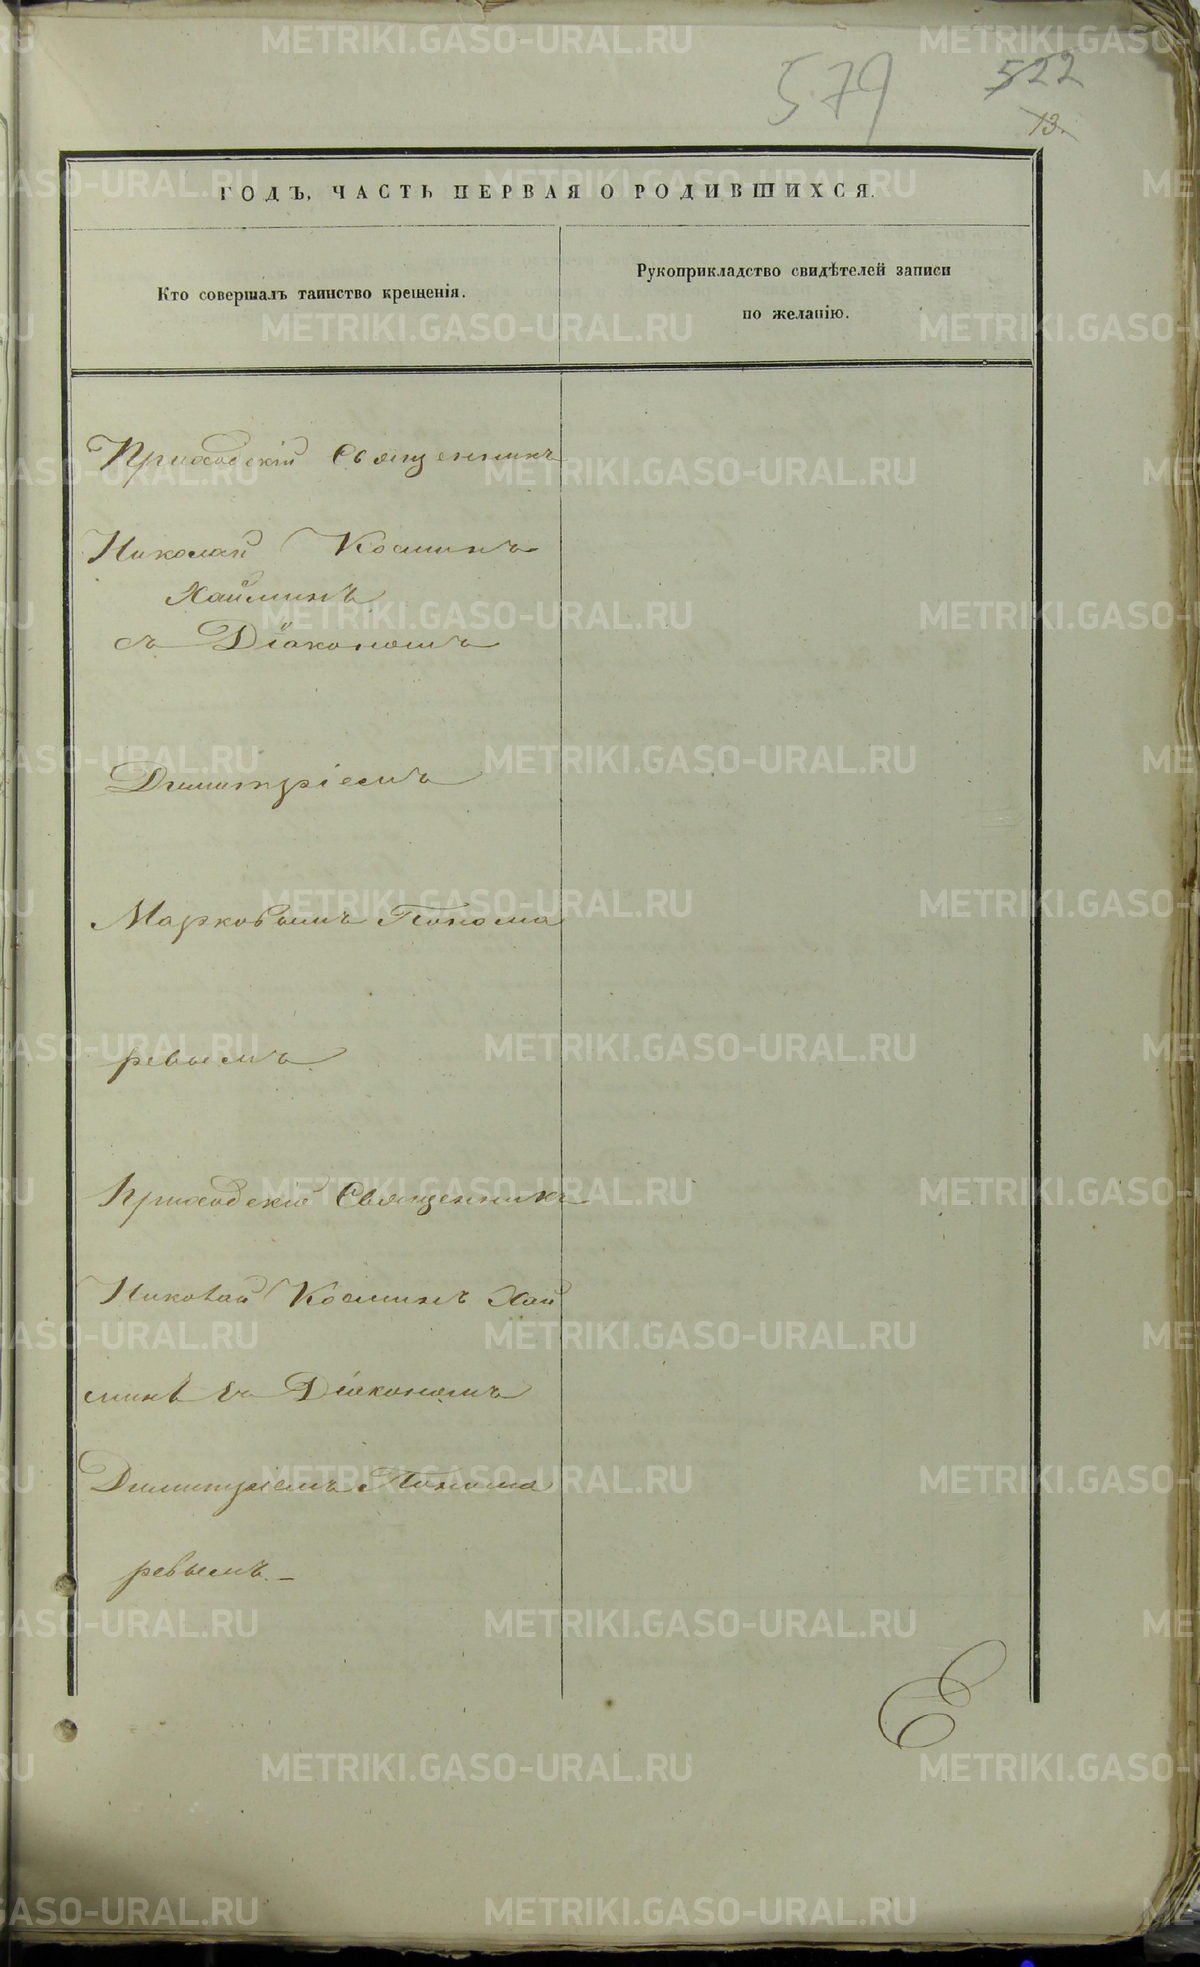 579
522
13.
ГОДЪ, ЧАСТЬ ПЕРВАЯ О РОДИВШИХСЯ.
Кто совершалъ таинство крещенія.
Рукоприкладство свидѣтелей записи
по желанію.
Приходскій Священникъ
Николай Косминъ
Хайминъ
съ Діакономъ
Димитріемъ
Марковымъ Понома
ревымъ
Приходскій Священникъ
Николай Косминъ Хай
минъ съ Діакономъ
Димитріемъ Понома
ревымъ. –
Е
METRIKI.GASO-URAL.RU